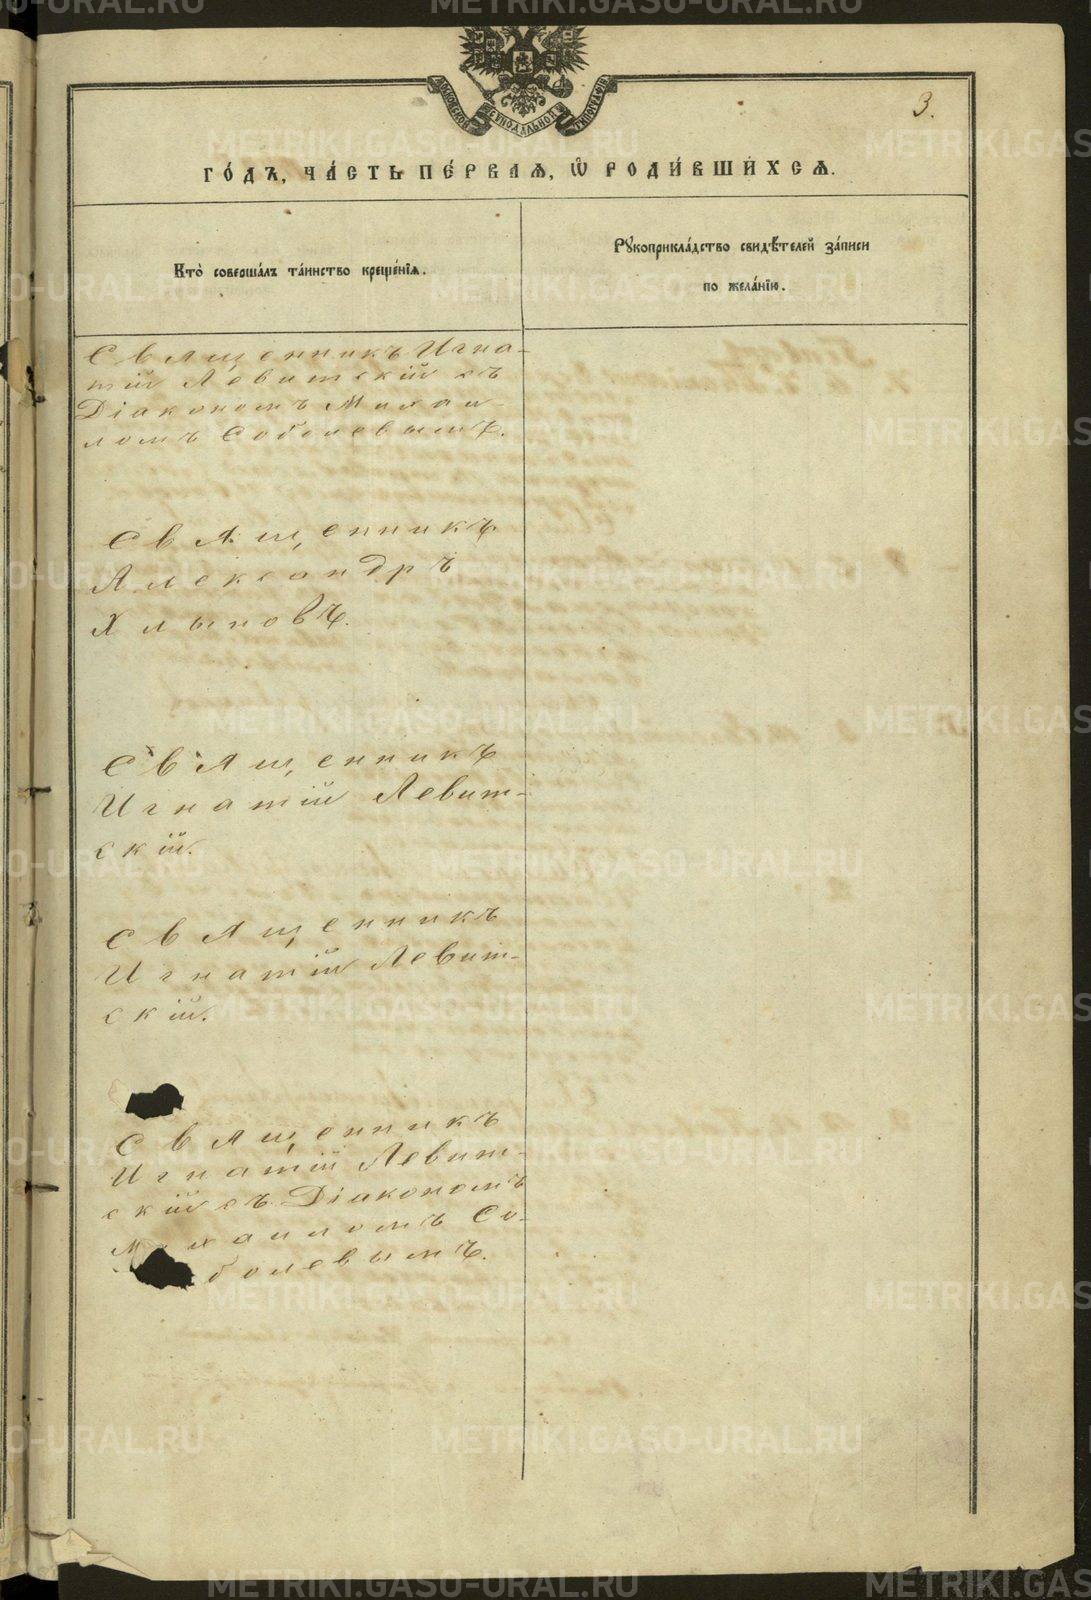 МОСКОВСКОЙ СУНОДАЛЬНОЙ ТИПОГРАФІИ
3.
ГО́ДЪ, ЧА́СТЬ ПЕ́РВАѦ, Ѽ РОДИ́ВШИХСѦ.
Кто̀ соверша́лъ та́инство креще́нїѧ.
Рꙋкоприкла́дство свидѣ́телей за́писи
по жела́нїю.
Священникъ Игна-
тій Левитскій съ
Діакономъ Михаи-
ломъ Соболевымъ.
Священникъ
Александръ
Хлыновъ.
Священникъ
Игнатій Левит-
скій.
Священникъ
Игнатій Левит-
скій.
Священникъ
Игнатій Левит-
скій съ Діакономъ
Михаиломъ Со-
болевымъ.
METRIKI.GASO-URAL.RU